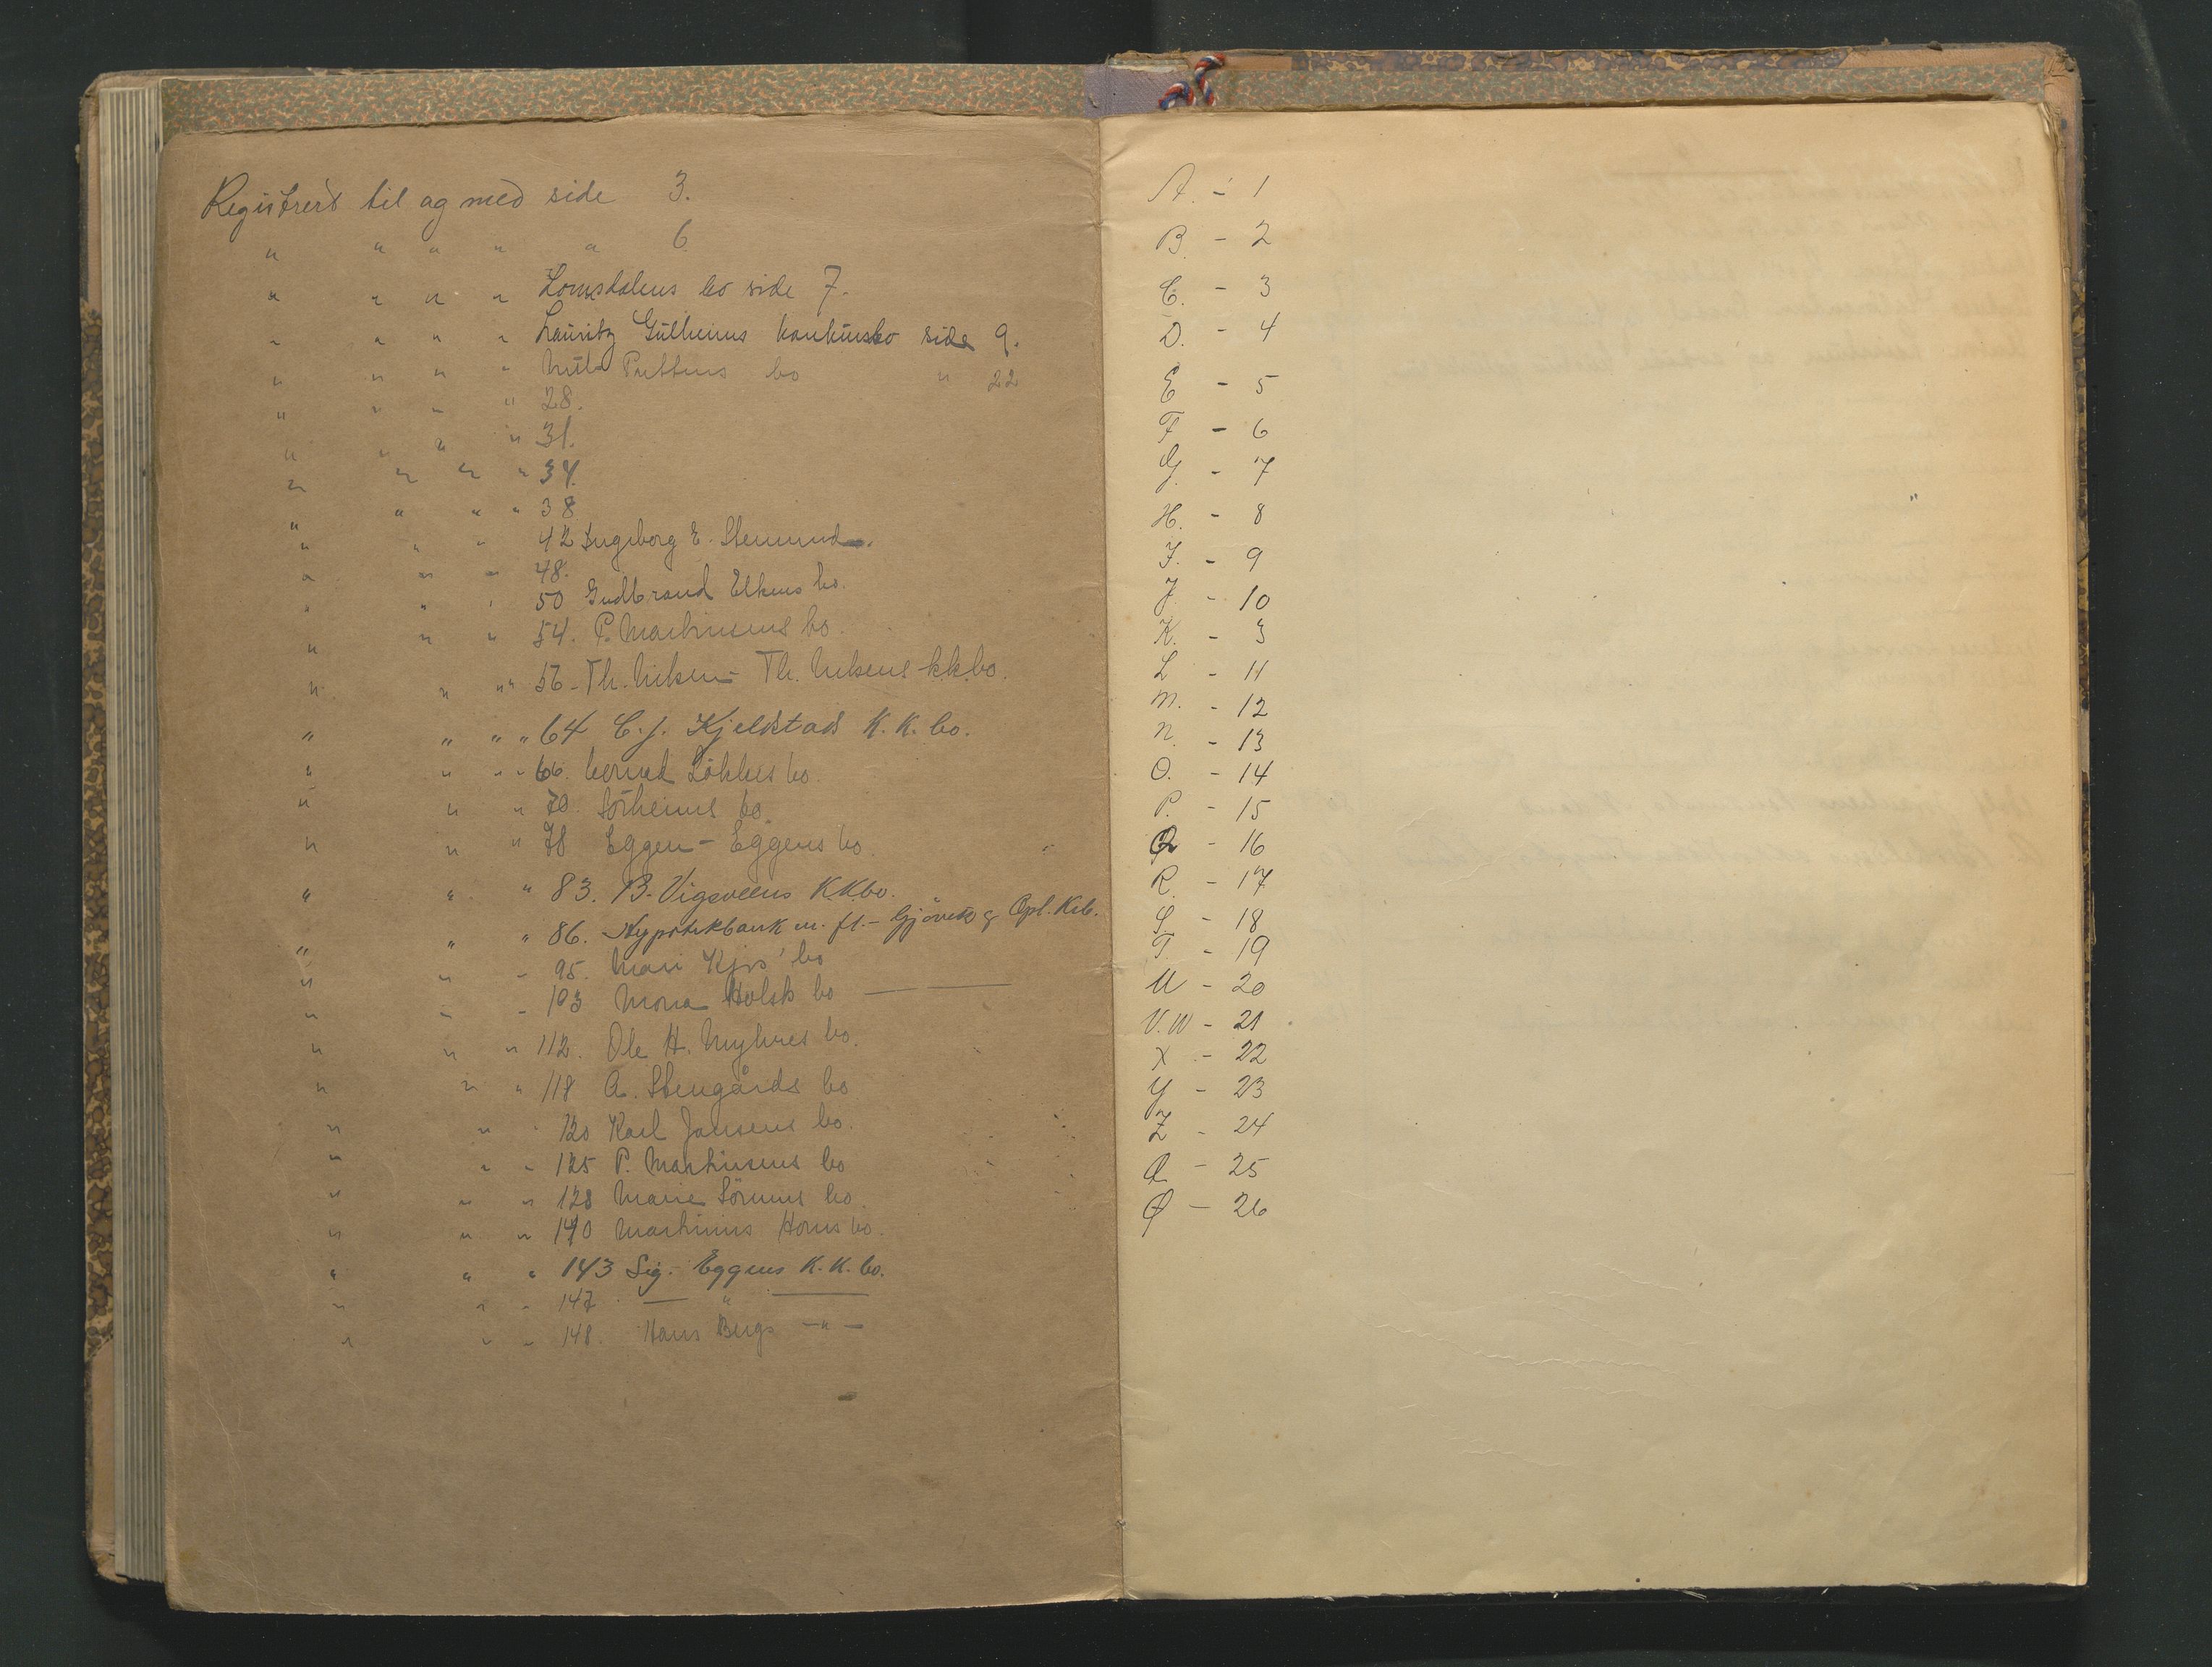 Registrert til og med side 3.
" " " " " 6
" " " " Lomsdalens bo side 7.
" " " " Lauritz Gulheims konkursbo side 9.
" " " " bo " 22
" " " " 28.
" " " " 31.
" " " " 34.
" " " " 38
" " " 42 Ingeborg E.
" " " 48.
" " " 50 Gudbrand bo.
" " " 54. P. Martinsens bo.
" " " " 56 - Th. Nilsen - Th. Nilsens k.k.bo.
" " " " 64 C. J. Kjeldstad K. K. bo.
" " " " 66. Berned Løkkes bo.
" " " 70. Sörheims bo
" " " 78 Eggen - Eggens bo
" " " 83. B. Vigsveens K.K.bo.
" " " 86. Hypotekbank m. fl. - Gjövik & Opl. Krb.
" " " 95. Mari Kjos' bo
" " " 103 Mona Holsts bo — —
" " " 112. Ole H. Myhres bo.
" " " 118 A. Stengårds bo
" " " 120 Karl Jansens bo.
" " " 125 P. Martinsens bo
" " " 128 Marie bo.
" " " 140 Martinius Horns bo.
" " " 143 Sig. Eggens K. K. bo.
" " " 147 — " —
" " " 148. Hans Bergs — " —
A. - 1
B. - 2
C. - 3
D. - 4
E - 5
F - 6
G. - 7
H. - 8
I. - 9
J - 10
K. - 3
L - 11
M. - 12
N. - 13
O. - 14
P. - 15
Q - 16
R. - 17
S - 18
T. - 19
U - 20
V. W - 21
X - 22
Y - 23
Z - 24
Æ - 25
Ø - 26